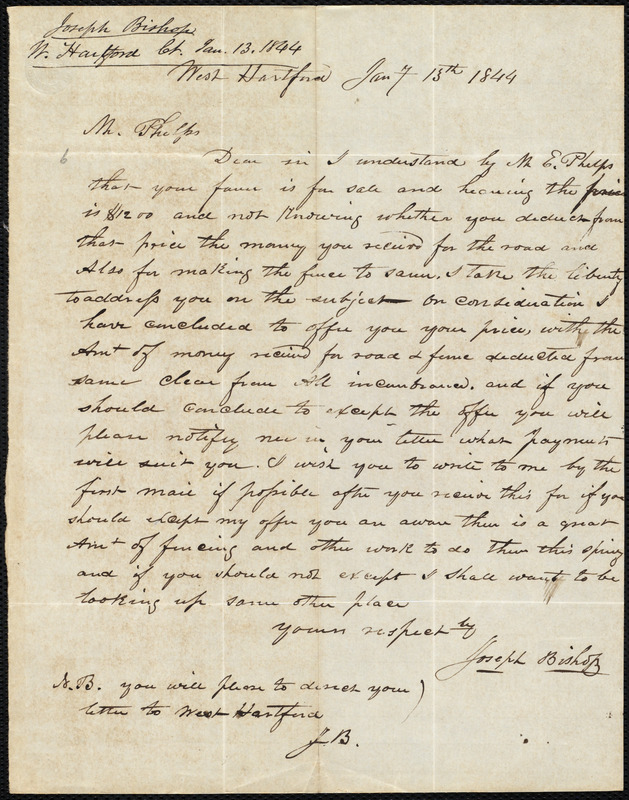 Joseph Bishop.
W. Hartford Ct. Jan. 13. 1844
West Hartford Jany 13th 1844
Mr. Phelps
Dear sir I understand by Mr E. Phelps
that your farm is for sale and hearing the price
is $1200 and not Knowing whether you deduct from
that price the money you recievd for the road and
Also for making the fence to same. I take the liberty
to address you on the subject — On consideration I
have concluded to offer you your price, with the
Amt of money recievd for road & fence deducted from
same clear from All incumbrance. and if you
should conclude to except the offer you will
please notify me in your letter what payments
will suit you. I wish you to write to me by the
first mail if possible after you receive this for if you
should except my offer you are aware there is a great
Amt of fencing and other work to do there this spring
and if you should not except I shall want to be
looking up some other place
yours respectly
Joseph Bishop
N.B. you will please to direct your
letter to West Hartford
J.B.
6